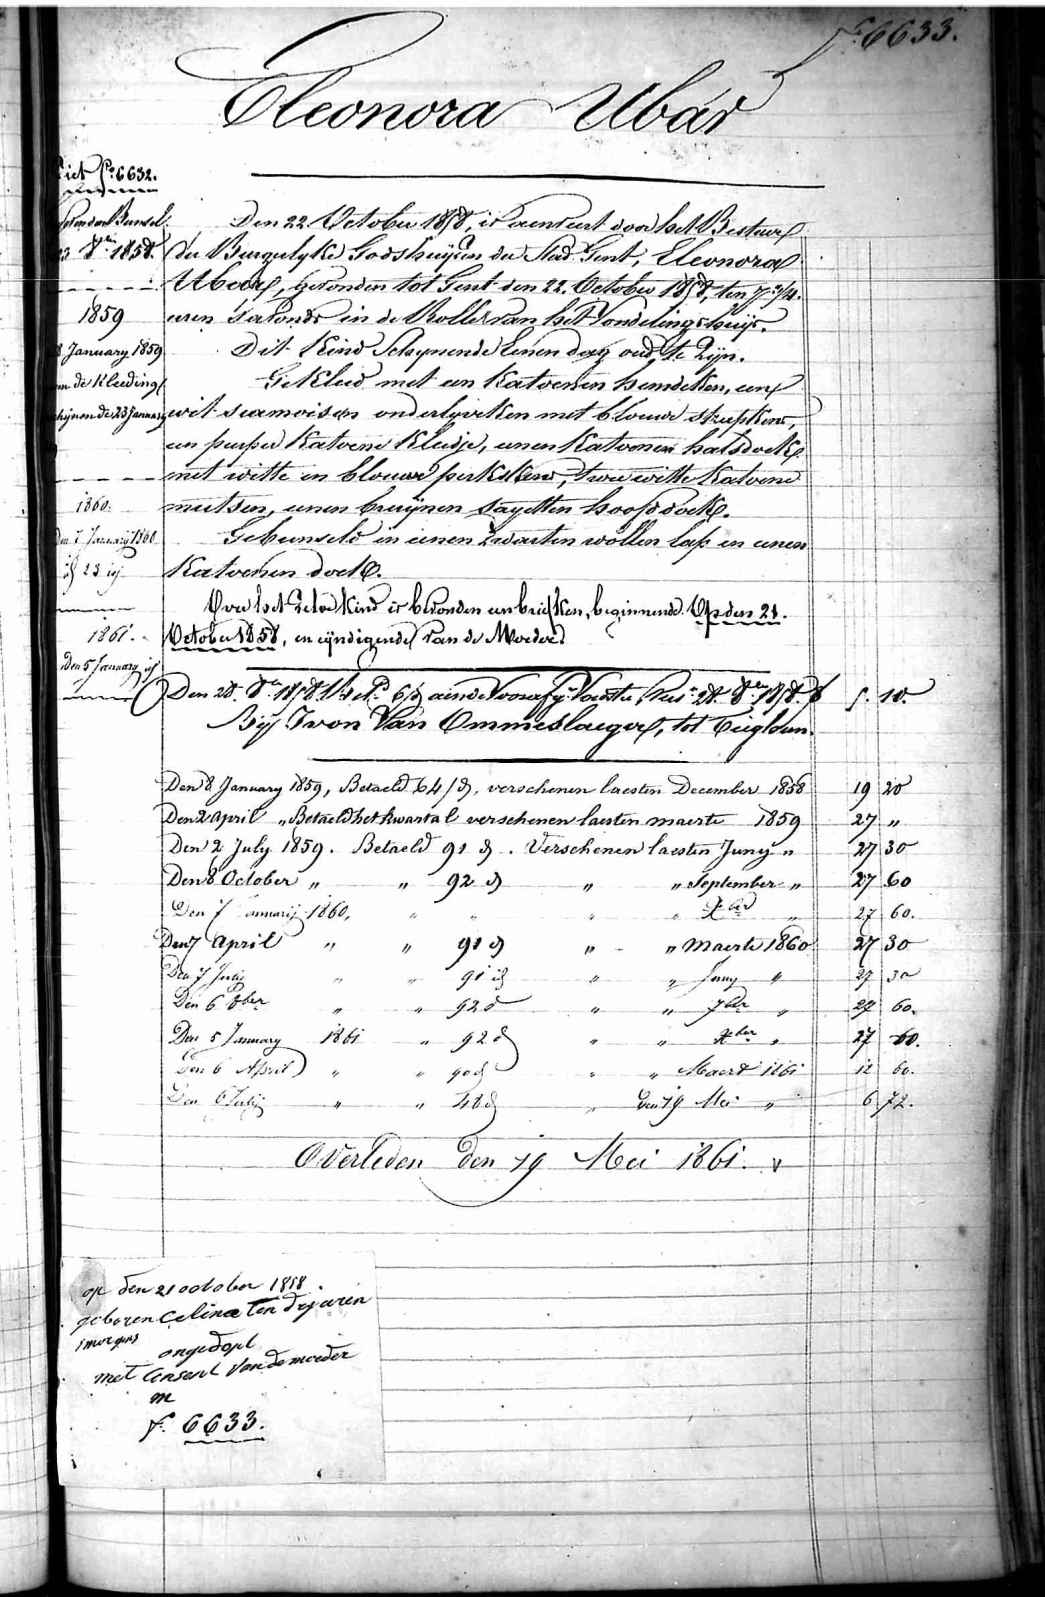 F.° 6633.
Eleonora Ubár
F.° 6632.
8.re 1858.
1859
8 January 1859
de Kleeding
23 January
1860.
den 7 January 1860
1861.
den 5 January
Den 22. October 1858, is door het Bestuur
der Burgelyke Godshuysen der Stad Gent, Eleonora
Ubár, gevonden tot Gent den 22. October 1858, ten 7 1/4.
uren 's avonds in de Rolle van het Vondelingshuys.
Dit Kind Schynende Eenen dag oud te Zyn.
Gekleed met een Katoenen hemdeken, een
wit siamoisen onderlyveken met blouwe streepkens,
een purper Katoene Kleedje, eenen Katoenen halsdoek
met witte en blouwe perkskens, twee witte Katoene
mutsen, eenen bruynen sayetten hoofddoek.
Gebunseld in eenen Zwarten wollen lap en eenen
Katoenen doek.
Over het Zelve Kind is bevonden een briefken, beginnende Op den 21.
October 1858, en eyndigende van de Moeder.
Den 28. 8.re 1858. 28. 8.re 1858. 5. 10.
Bij Ivon Van Ommeslaeger, tot
Den 8 January 1859, Betaeld 64/d, verschenen laesten December 1858 19 20
Den 2 april " Betaeld het kwartal verschenen laesten maerte 1859 27 "
Den 2 July 1859. Betaeld 91 d. Verschenen laesten Juny " 27 30
Den 8 October " " 92 d " " September " 27 60
Den 7 January 1860, " " " " Xber " 27 60.
Den 7 April " " 91 d " " Maerte 1860 27 30
Den 7 July " " 91 d " " Juny " 27 30
Den 6 8ber " " 92 d " " 7ber " 27 60.
Den 5 January 1861 " 92 d " " Xber " 27 60.
Den 6 April " " 90 d " " Maert 1861 12 60.
Den 6 July " " 48 d " den 19 Mei " 6 72.
Overleden den 19 Mei 1861.
op den 21 october 1858.
geboren Celina ten dry uren
smorgens
ongedopt
met Consent Van de moeder
m
F.° 6633.